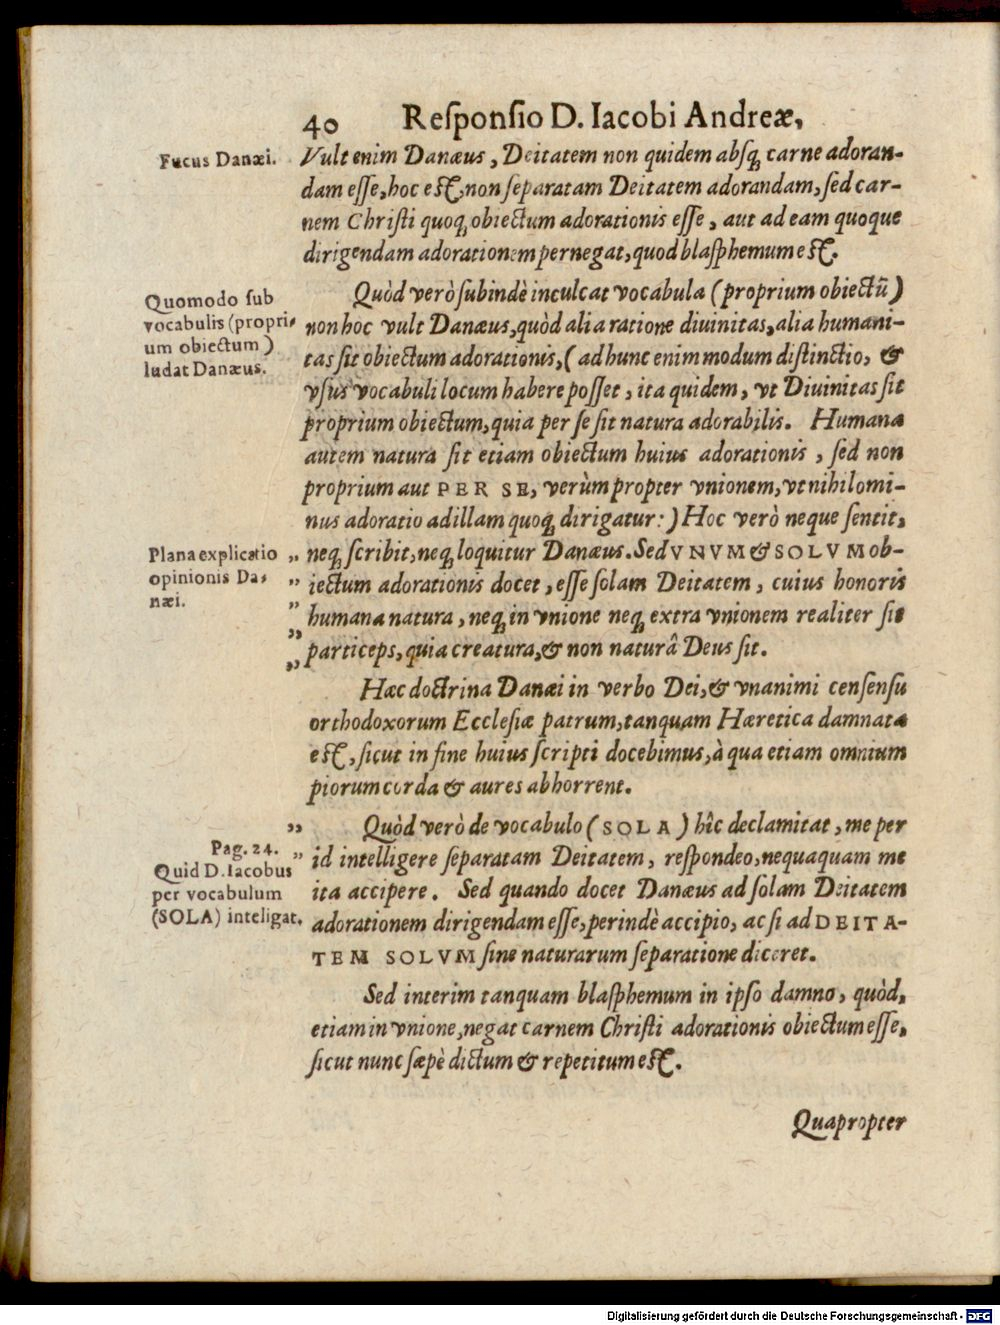 40 Reſponſio D. Iacobi Andreæ,
Fucus Danæi.
Vult enim Danæus, Deitatem non quidem abſq; carne adoran-
dam eſſe, hoc eſt, non ſeparatam Deitatem adorandam, ſed car-
nem Chriſti quoq; obiectum adorationis eſſe, aut ad eam quoque
dirigendam adorationem pernegat, quod blaſphemum eſt.
Quomodo ſub
vocabulis (propri-
um obiectum)
ludat Danæus.
Quòd verò ſubindè inculcat vocabula (proprium obiectũ)
non hoc vult Danæus, quòd alia ratione diuinitas, alia humani-
tas ſit obiectum adorationis, (ad hunc enim modum diſtinctio, &
vſus vocabuli locum habere poſſet, ita quidem, vt Diuinitas ſit
proprium obiectum, quia per ſe ſit natura adorabilis. Humana
autem natura ſit etiam obiectum huius adorationis, ſed non
proprium aut PER SE, verùm propter vnionem, vt nihilomi-
nus adoratio ad illam quoq; dirigatur:) Hoc verò neque ſentit,
Plana explicatio
opinionis Da-
næi.
„ neq; ſcribit, neq; loquitur Danæus. Sed VNVM & SOLVM ob-
„ iectum adorationis docet, eſſe ſolam Deitatem, cuius honoris
„ humana natura, neq; in vnione neq; extra vnionem realiter ſit
„ particeps, quia creatura, & non naturâ Deus ſit.
„
Hæc doctrina Danæi in verbo Dei, & vnanimi cenſenſu
orthodoxorum Eccleſiæ patrum, tanquam Hæretica damnata
eſt, ſicut in fine huius ſcripti docebimus, à qua etiam omnium
piorum corda & aures abhorrent.
Pag. 24.
Quid D. Iacobus
per vocabulum
(SOLA) inteligat.
„ Quòd verò de vocabulo (SOLA) hîc declamitat, me per
„ id intelligere ſeparatam Deitatem, reſpondeo, nequaquam me
ita accipere. Sed quando docet Danæus ad ſolam Deitatem
adorationem dirigendam eſſe, perindè accipio, ac ſi ad DEITA-
TEM SOLVM ſine naturarum ſeparatione diceret.
Sed interim tanquam blaſphemum in ipſo damno, quòd,
etiam in vnione, negat carnem Chriſti adorationis obiectum eſſe,
ſicut nunc ſæpè dictum & repetitum eſt.
Quapropter
Digitalisierung gefördert durch die Deutsche Forschungsgemeinschaft - DFG